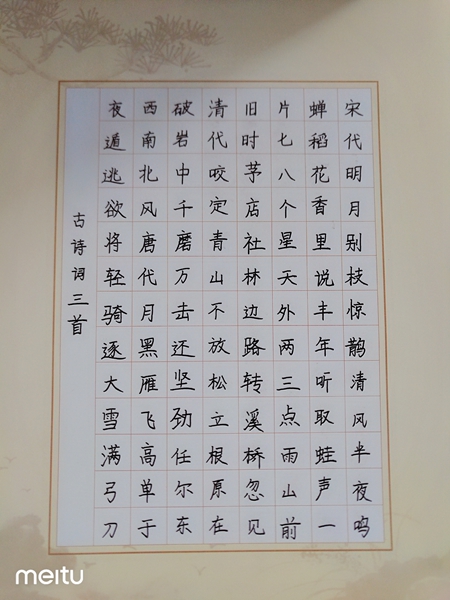 宋代明月别枝惊鹊清风半夜鸣
蝉稻花香里说丰年听取蛙声一
片七八个星天外两三点雨山前
旧时茅店社林边路转溪桥忽见
清代咬定青山不放松立根原在
破岩中千磨万击还坚劲任尔东
西南北风唐代月黑雁飞高单于
夜遁逃欲将轻骑逐大雪满弓刀
古诗词三首
meitu